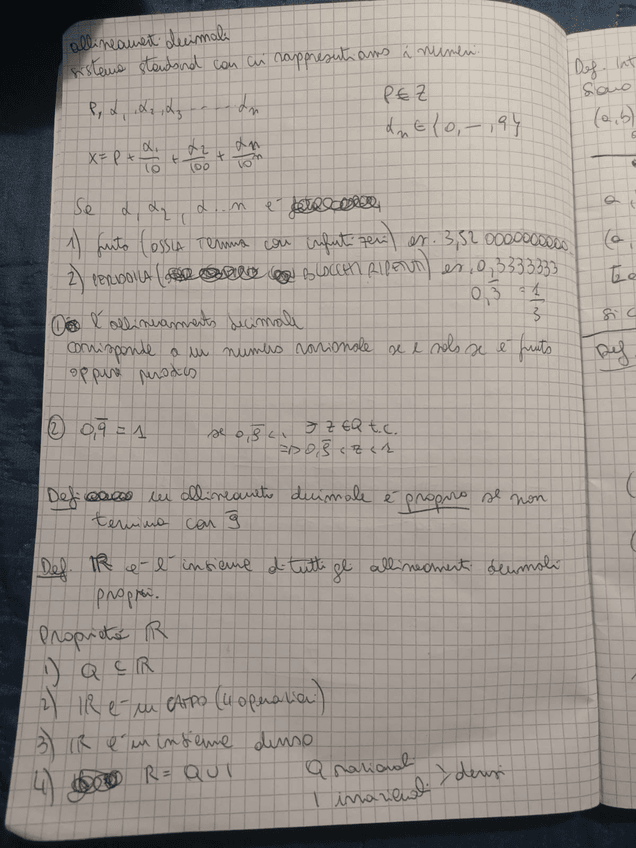 allineamenti decimali
sistema standard con cui rappresentiamo i numeri
P, α₁, α₂, α₃ ----- αn
P ∈ Z
αn ∈ {0, -, 9}
X = P + α₁/10 + α₂/100 + αn/10ⁿ
Se α₁ α₂, α...n è
1) finito (OSSIA TERMINA con infiniti zeri) es. 3,520000000000
2) PERIODICA ( BLOCCHI RIPETUTI) es, 0,3333333
0,3̅ = 1/3
① l'allineamento decimale
corrisponde a un numero razionale se e solo se è finito
oppure periodico
② 0,9̅ = 1 se 0,9̅ < 1 ∃ z ∈ Q t.c.
=> 0,9̅ < z < 1
Def: un allineamento decimale è proprio se non
termina con 9̅
Def. ℝ è l'insieme di tutti gli allineamenti decimali
propri.
Proprietà ℝ
1) Q ⊆ ℝ
2) ℝ è un CAMPO (4 operazioni)
3) ℝ è un insieme denso
4) R = Q ∪ I Q razionali > densi
I irrazionali
Def. Int
Siano
(a,b)
a,
(a,
si c
Def